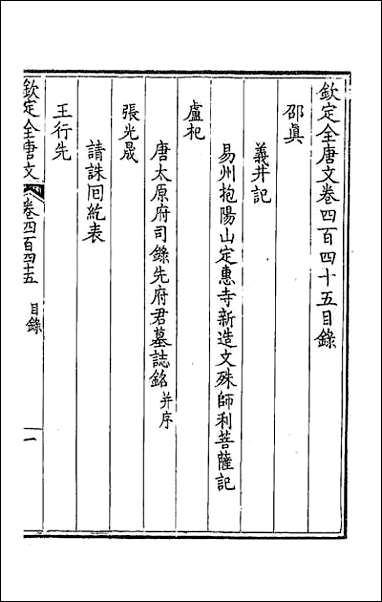 欽定全唐文卷四百四十五目錄
邵眞
義井記
易州抱陽山定惠寺新造文殊師利菩薩記
盧杞
唐太原府司錄先府君墓誌銘 并序
張光晟
請誅囘紇表
王行先
欽定全唐文 卷四百四十五 目錄 一